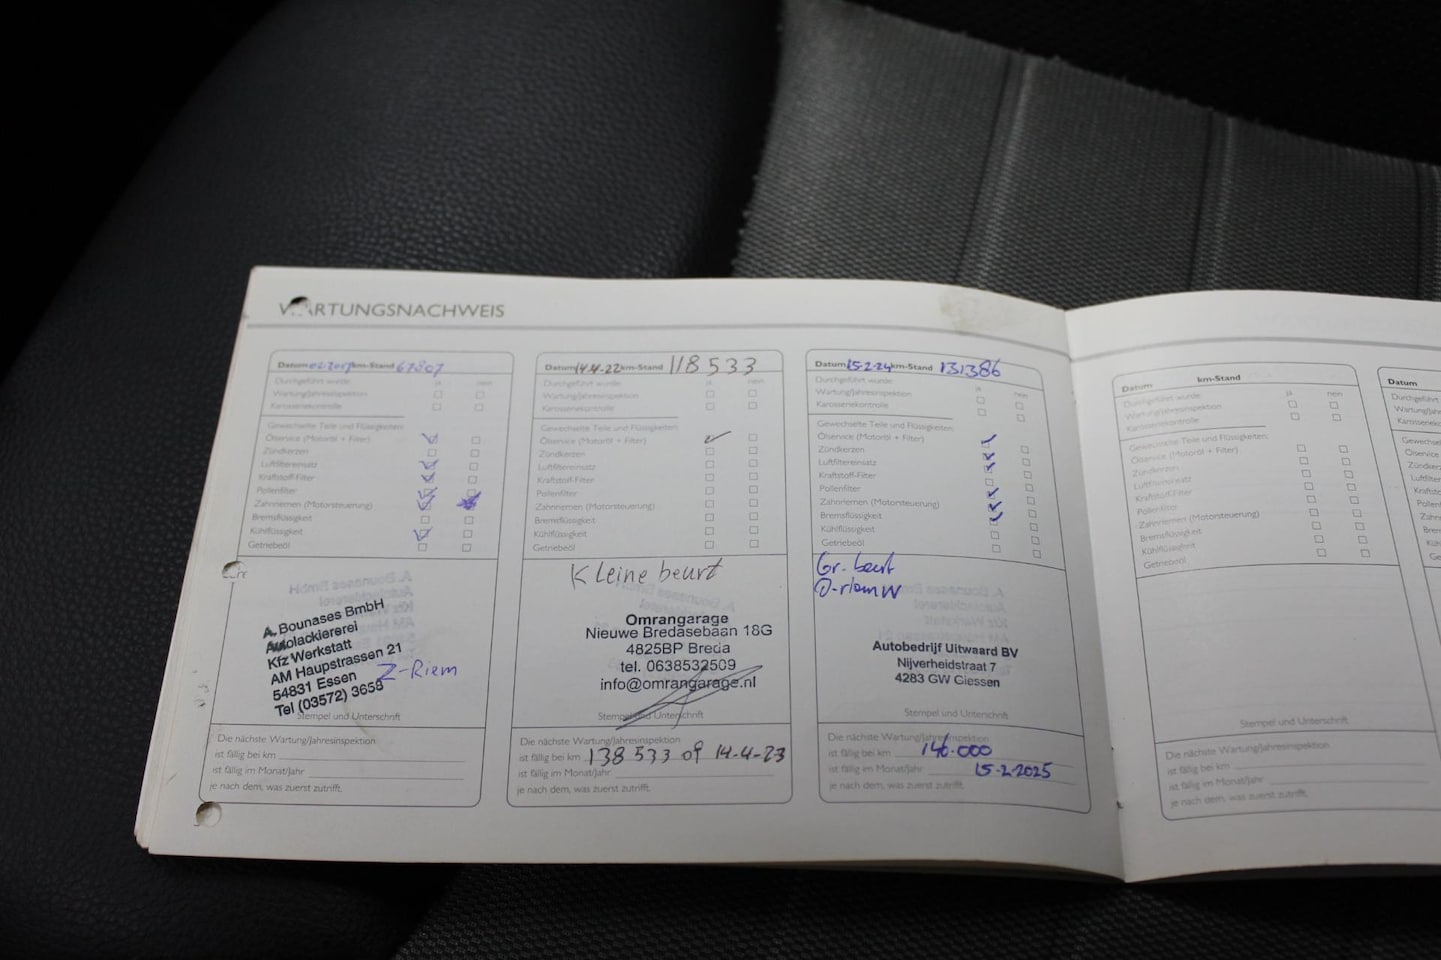 WARTUNGSNACHWEIS
Datum 02 2017 km-Stand 67807
Durchgeführt wurde ja nein
Wartung/Jahresinspektion
Karosseriekontrolle
Gewechselte Teile und Flüssigkeiten:
Ölservice (Motoröl + Filter)
Zündkerzen
Luftfiltereinsatz
Kraftstoff-Filter
Pollenfilter
Zahnriemen (Motorsteuerung)
Bremsflüssigkeit
Kühlflüssigkeit
Getriebeöl
A. Bounases BmbH
Autolackiererei
Kfz Werkstatt
AM Haupstrassen 21
54831 Essen
Tel (03572) 3658
Z-Riem
Stempel und Unterschrift
Die nächste Wartung/Jahresinspektion
ist fällig bei km
ist fällig im Monat/Jahr
je nach dem, was zuerst zutrifft.
Datum 14-4-22 km-Stand 118533
Durchgeführt wurde ja nein
Wartung/Jahresinspektion
Karosseriekontrolle
Gewechselte Teile und Flüssigkeiten:
Ölservice (Motoröl + Filter)
Zündkerzen
Luftfiltereinsatz
Kraftstoff-Filter
Pollenfilter
Zahnriemen (Motorsteuerung)
Bremsflüssigkeit
Kühlflüssigkeit
Getriebeöl
Kleine beurt
Omrangarage
Nieuwe Bredasebaan 18G
4825BP Breda
tel. 0638532509
info@omrangarage.nl
Stempel und Unterschrift
Die nächste Wartung/Jahresinspektion
ist fällig bei km 138 533 of 14-4-23
ist fällig im Monat/Jahr
je nach dem, was zuerst zutrifft.
Datum 15-2-24 km-Stand 131386
Durchgeführt wurde ja nein
Wartung/Jahresinspektion
Karosseriekontrolle
Gewechselte Teile und Flüssigkeiten:
Ölservice (Motoröl + Filter)
Zündkerzen
Luftfiltereinsatz
Kraftstoff-Filter
Pollenfilter
Zahnriemen (Motorsteuerung)
Bremsflüssigkeit
Kühlflüssigkeit
Getriebeöl
Gr. beurt
Autobedrijf Uitwaard BV
Nijverheidstraat 7
4283 GW Giessen
Stempel und Unterschrift
Die nächste Wartung/Jahresinspektion
ist fällig bei km 146.000
ist fällig im Monat/Jahr 15-2-2025
je nach dem, was zuerst zutrifft.
Datum km-Stand
Durchgeführt wurde ja nein
Wartung/Jahresinspektion
Karosseriekontrolle
Gewechselte Teile und Flüssigkeiten:
Ölservice (Motoröl + Filter)
Zündkerzen
Luftfiltereinsatz
Kraftstoff-Filter
Pollenfilter
Zahnriemen (Motorsteuerung)
Bremsflüssigkeit
Kühlflüssigkeit
Getriebeöl
Stempel und Unterschrift
Die nächste Wartung/Jahresinspektion
ist fällig bei km
ist fällig im Monat/Jahr
je nach dem, was zuerst zutrifft.
Datum